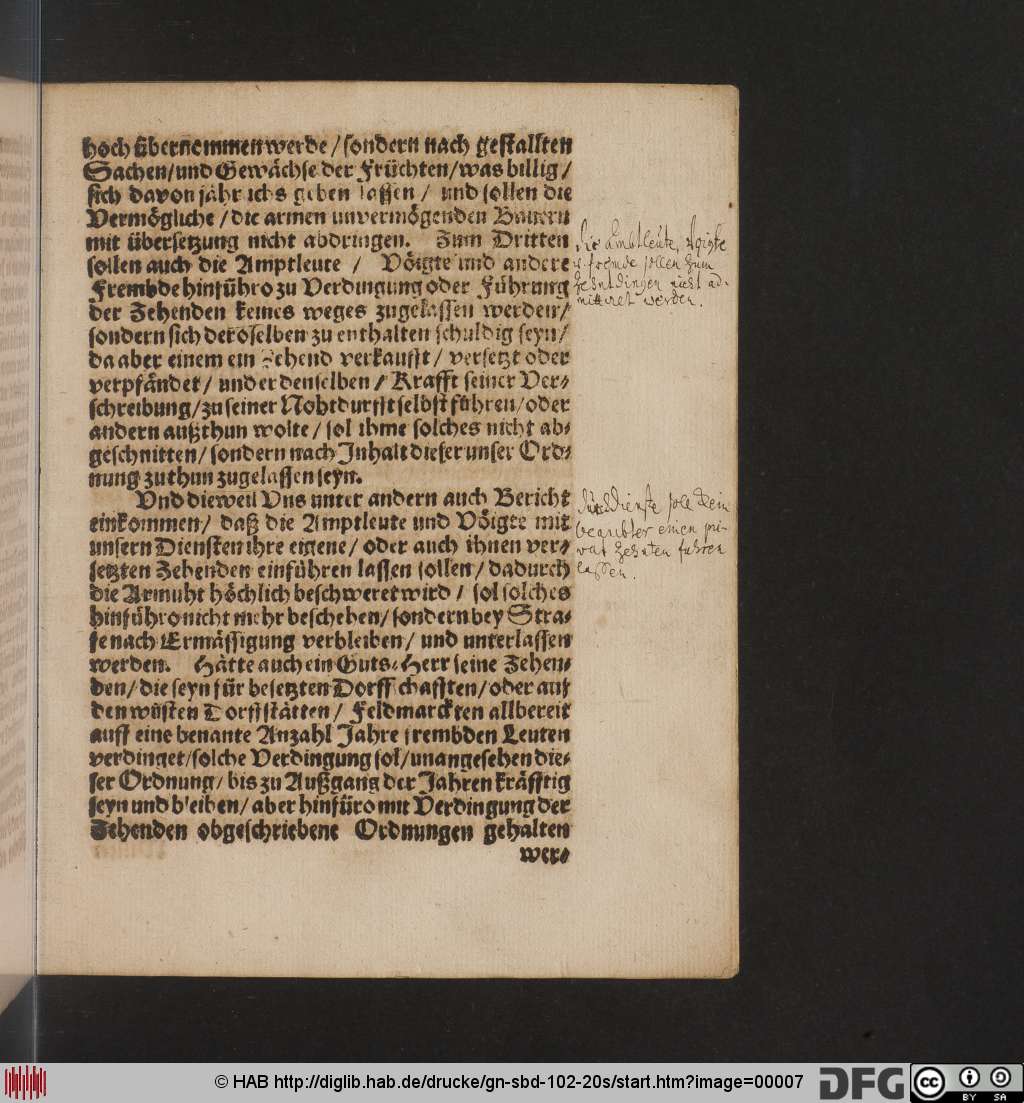 hoch übernemmen werde / sondern nach gestallten
Sachen/und Gewächse der Früchten/was billig /
sich davon jährichs geben lassen / und sollen die
Vermögliche / die armen unvermögenden Bauern
mit übersetzung nicht abdringen. Zum Dritten
sollen auch die Amptleute / Vöigte und andere
Frembde hinführo zu Verdingung oder Führung
der Zehenden keines weges zugelassen werden/
sondern sich deroselben zu enthalten schuldig seyn/
da aber einem ein Zehend verkaufft / versetzt oder
verpfändet / und er denselben / Krafft seiner Ver-
schreibung/zu seiner Nohtdurfft selbst führen/oder
andern außthun wolte / sol ihme solches nicht ab-
geschnitten / sondern nach Inhalt dieser unser Ord-
nung zuthun zugelassen seyn.
Und dieweil Uns unter andern auch Bericht
einkommen / daß die Amptleute und Vöigte mit
unsern Diensten ihre eigene / oder auch ihnen ver-
setzten Zehenden einführen lassen sollen / dadurch
die Armuht höchlich beschweret wird / sol solches
hinführo nicht mehr bescheben / sondern bey Stra-
fe nach Ermässigung verbleiben / und unterlassen
werden. Hätte auch ein Guts-Herr seine Zehen-
den / die seyn für besetzten Dorffschafften/oder auf
den wüsten Dorffstätten / Feldmarckten allbereit
auff eine benante Anzahl Jahre frembden Leuten
verdinget/solche Verdingung sol/unangesehen die-
ser Ordnung / bis zu Außgang der Jahren kräfftig
seyn und bleiben / aber hinfüro mit Verdingung der
Zehenden obgeschriebene Ordnungen gehalten
wer-
die Ambtleute, Voigte
u. fremde sollen zum
Zehntdingen nicht ad-
mittiret werden.
durch Dienste soll kein
beambter einen pri-
vat Zehnten fahren
lassen.
© HAB http://diglib.hab.de/drucke/gn-sbd-102-20s/start.htm?image=00007
DFG
cc
BY SA